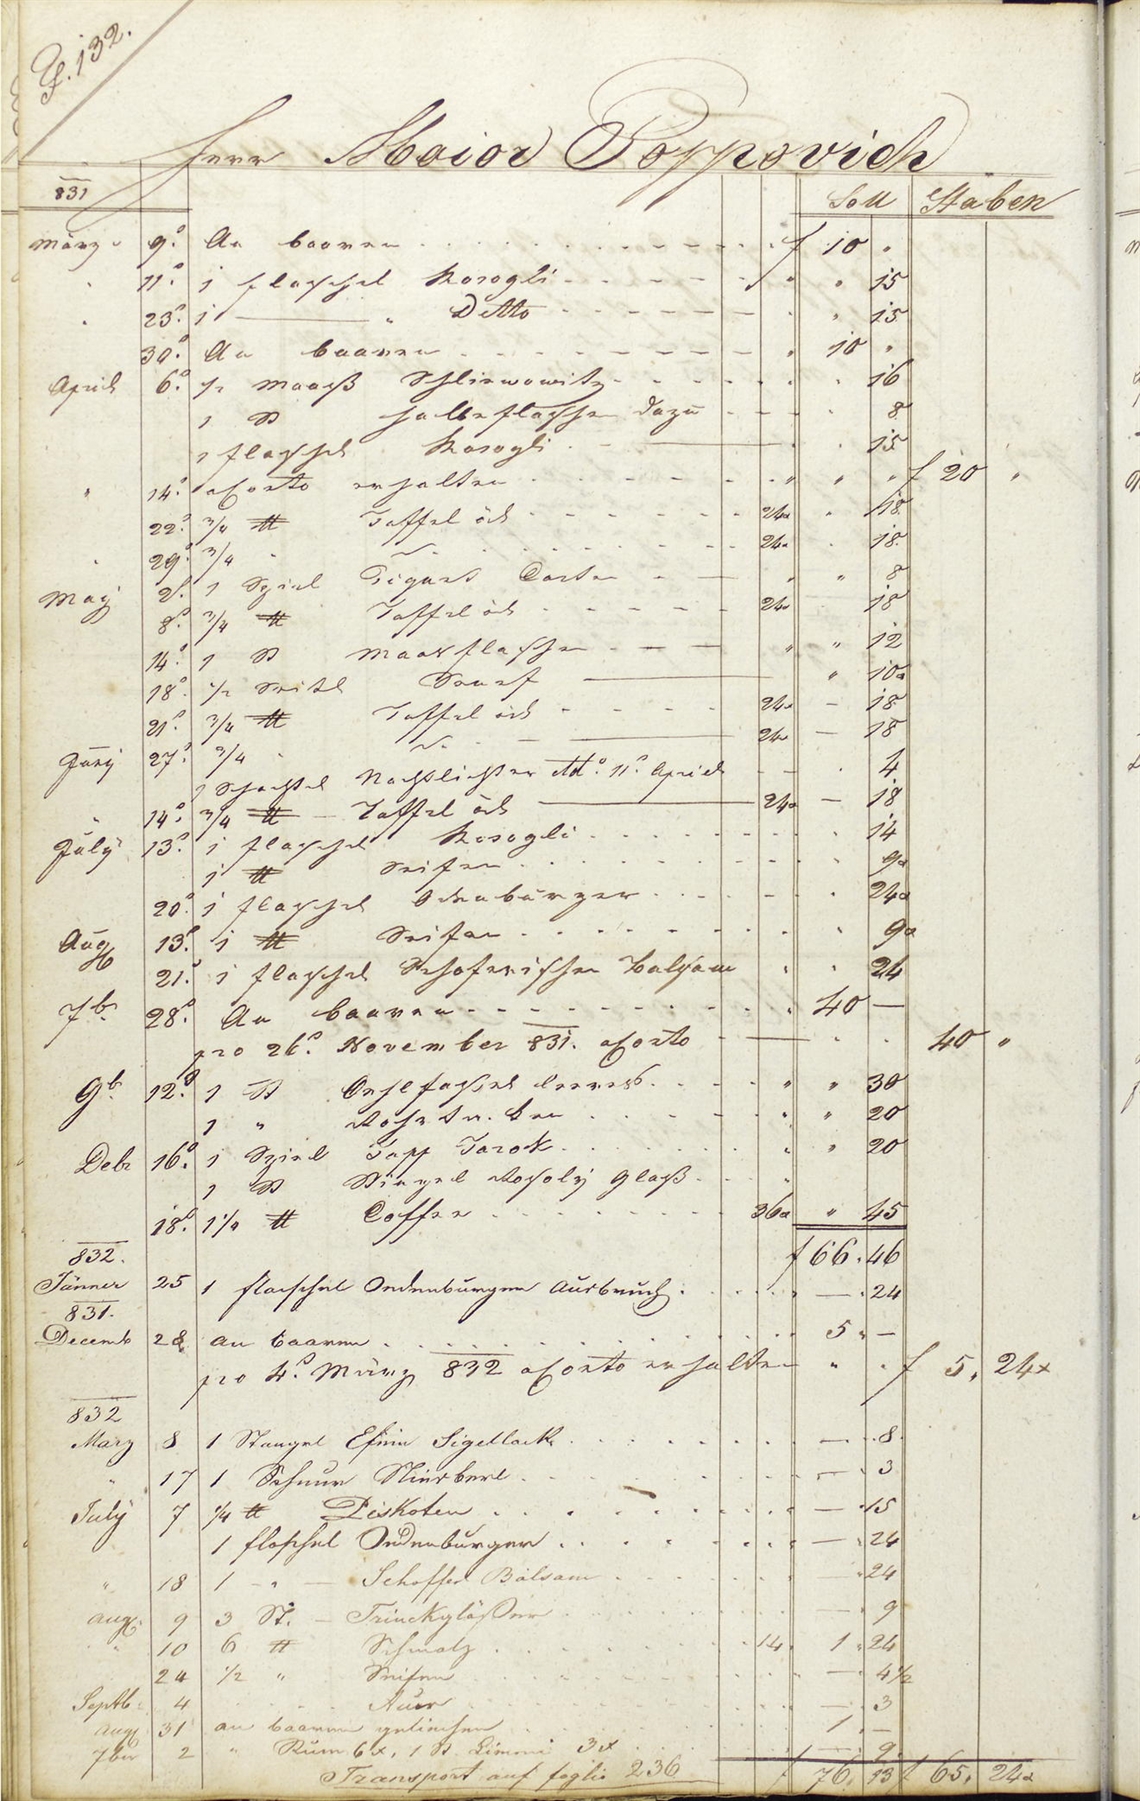 F. 132.
Herr Maior Poppovich
831 Soll Haben
März 9. An baaren f 10 "
" 11. 1 flaschel Rosogli " " 15
" 23. 1 " Detto " " 15
30. An baaren " 10 "
April 6. 1/2 Maaß Schliwowitz " 16
1 St halbe flaschen dazu " 8
1 flaschel Rosogli " 15
" 14. aConto erhalten " " " f 20 "
22. 3/4 ℔ Taffel öl 24x " 18
29. 3/4 " 24x " 18
May 2. 1 Spiel Piquet Carten " " 8
8. 3/4 ℔ Taffel öl 24x 18
14. 1 St Maasflaschen " " 12
18. 1/2 Seitel Senef " 10x
21. 3/4 ℔ Taffel öl 24x – 18
27. 3/4 " 24x – 18
Juny 1 Schachtel Nachtlichter Ad. 11. April " 4
" 14. 3/4 ℔ – Taffel öl 24x – 18
July 13. 1 flaschel Rosogli " 14
1 ℔ Seifen " 9x
20. 1 flaschel Ödenburger " 24x
Aug 13. 1 ℔ Seifen " 9x
21. 1 flaschel Schoferischen Balsam " " 24
7br 28. An baaren " 40 –
pro 26. November 831. aConto " " 40 "
9br 12. 1 St Oehlfassel leeres " " 30
1 " " " 20
Decbr 16. 1 Spiel Tapp Tarok " " 20
1 St Rosoly Glaß "
18. 1 1/4 ℔ Coffee 36x " 45
f 66. 46
832.
Jänner 25 1 flaschel Oedenburger Ausbruch — 24
831.
Decemb 28 an baaren 5 " —
pro 4. März 832 aConto erhalten " " f 5. 24x
832
März 8 1 Stangel Sigellack — 8
" 17 1 Schnur — 3
July 7 1/4 ℔ Piskoten — 15
1 flaschel Oedenburger — 24
" 18 1 – " – Schoffer Balsam " 24
Aug. 9 3 St. – Trinckgläßer — 9
" 10 6 ℔ Schmalz 14 1 . 24
24 1/2 " Seifen — 4 1/2
Septb. 4 — 3
Aug 31 an baaren geliehen 1 . —
7ber 2 " Rum 6x, 1 St. Limoni 3x — 9
Transport auf foglio 236 f 76. 13 f 65. 24x